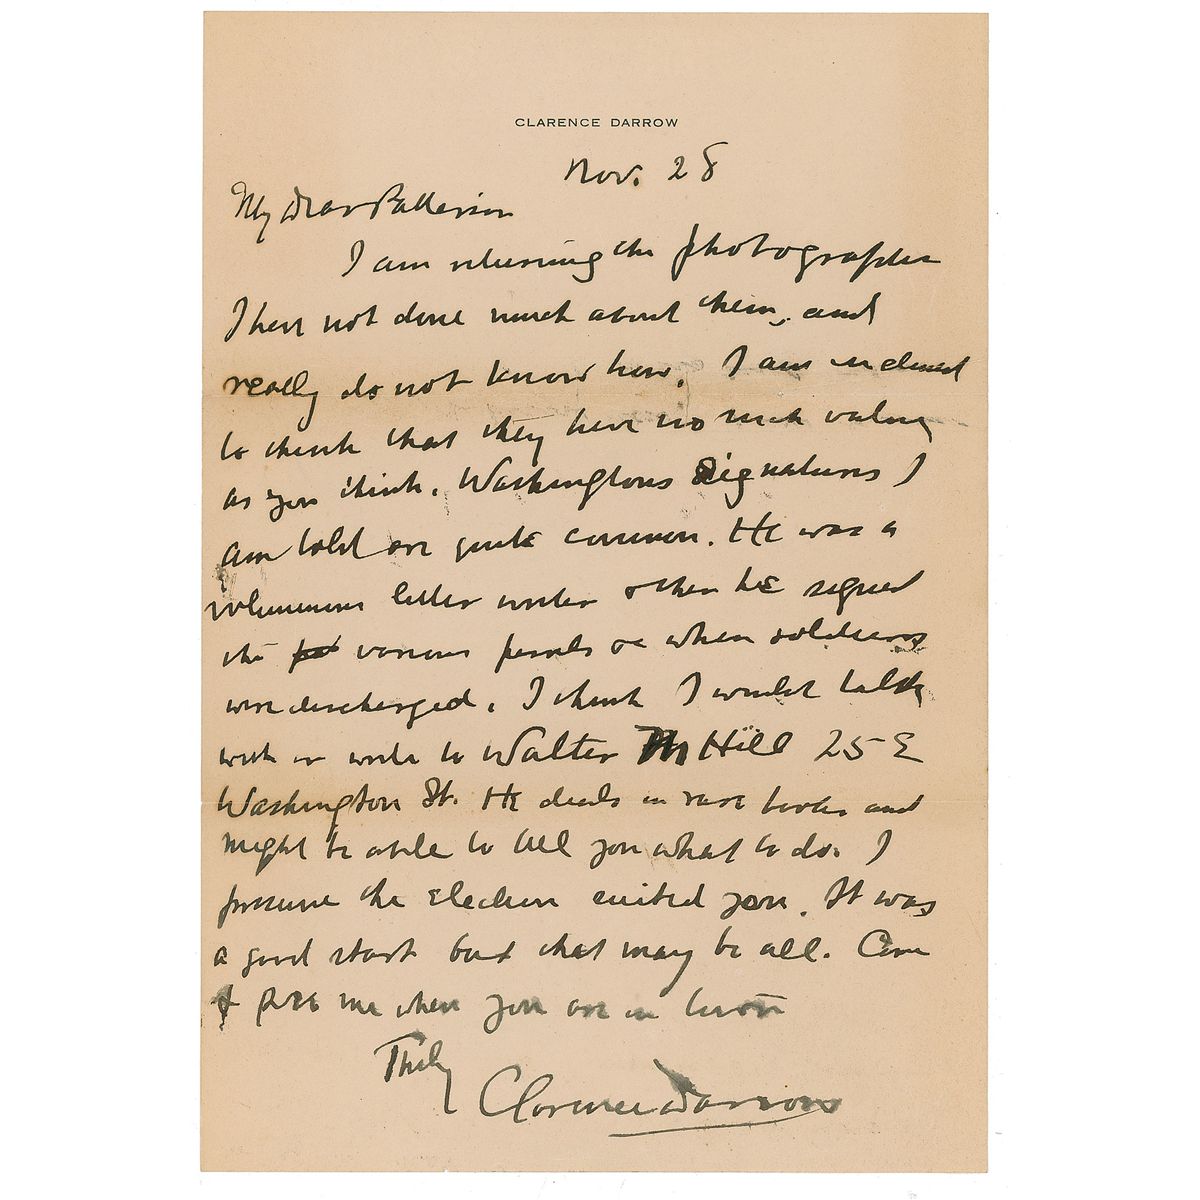 CLARENCE DARROW
Nov. 28
My Dear Patterson
I am returning the photographs
I have not done much about them, and
really do not know how. I am inclined
to think that they have no such value
as you think. Washingtons signatures I
am told are quite common. He was a
voluminous letter writer & then he signed
the various when soldiers
were discharged. I think I would talk
with or write to Walter M Hill 25 E
Washington St. He deals in rare books and
might be able to tell you what to do. I
presume the Election suited you. It was
a good start but that may be all. Come
& see me when you are in town
Truly
Clarence Darrow